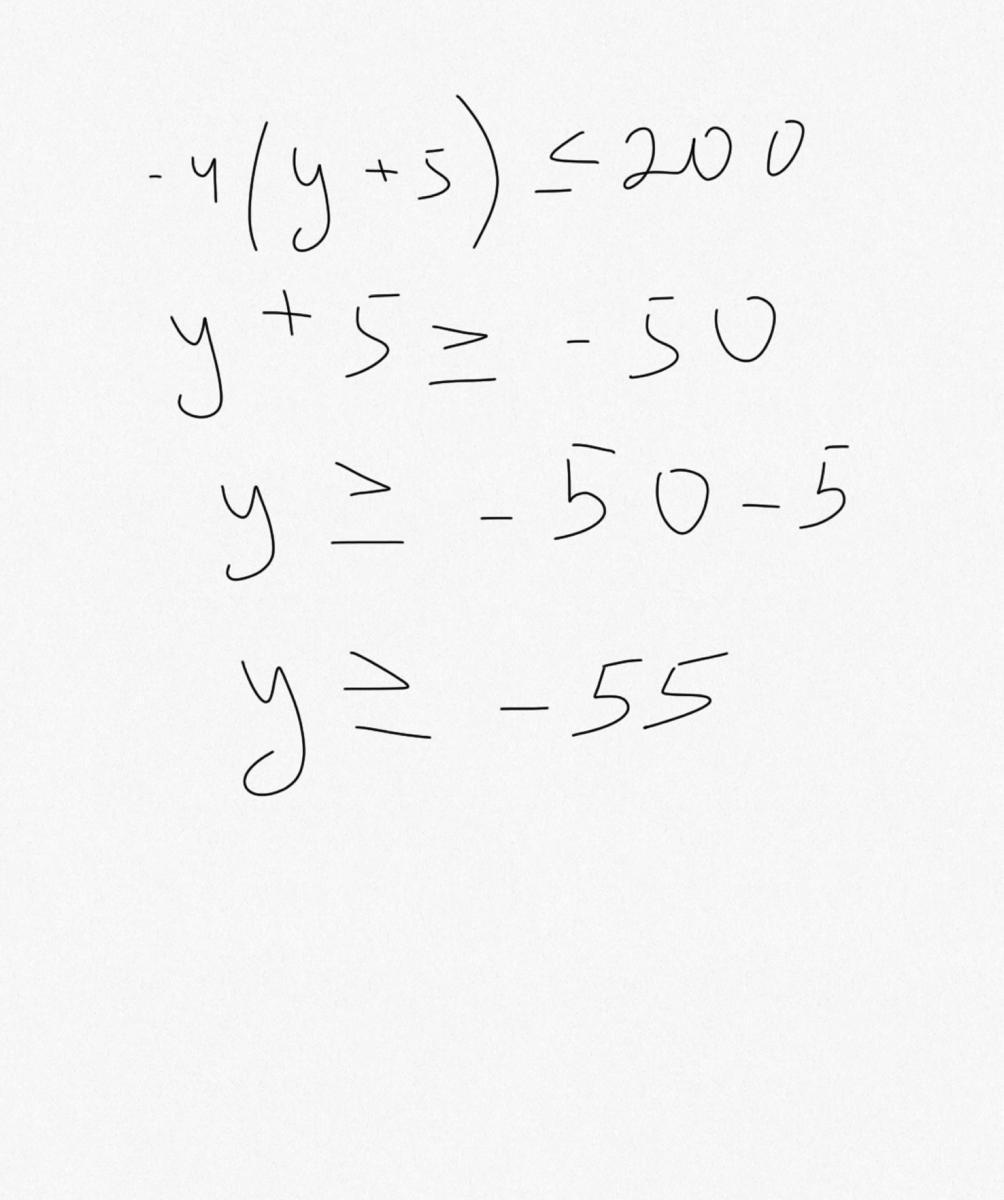 -4(y+5) ≤ 200
y+5 ≥ -50
y ≥ -50-5
y ≥ -55